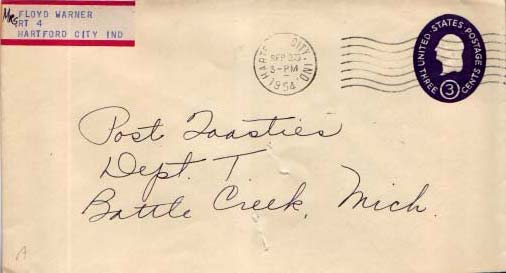 Mrs FLOYD WARNER
RT 4
HARTFORD CITY IND
HARTFORD CITY, IND.
SEP 20
3-PM
1954
UNITED STATES POSTAGE
THREE 3 CENTS
Post Toasties
Dept. T
Battle Creek, Mich.